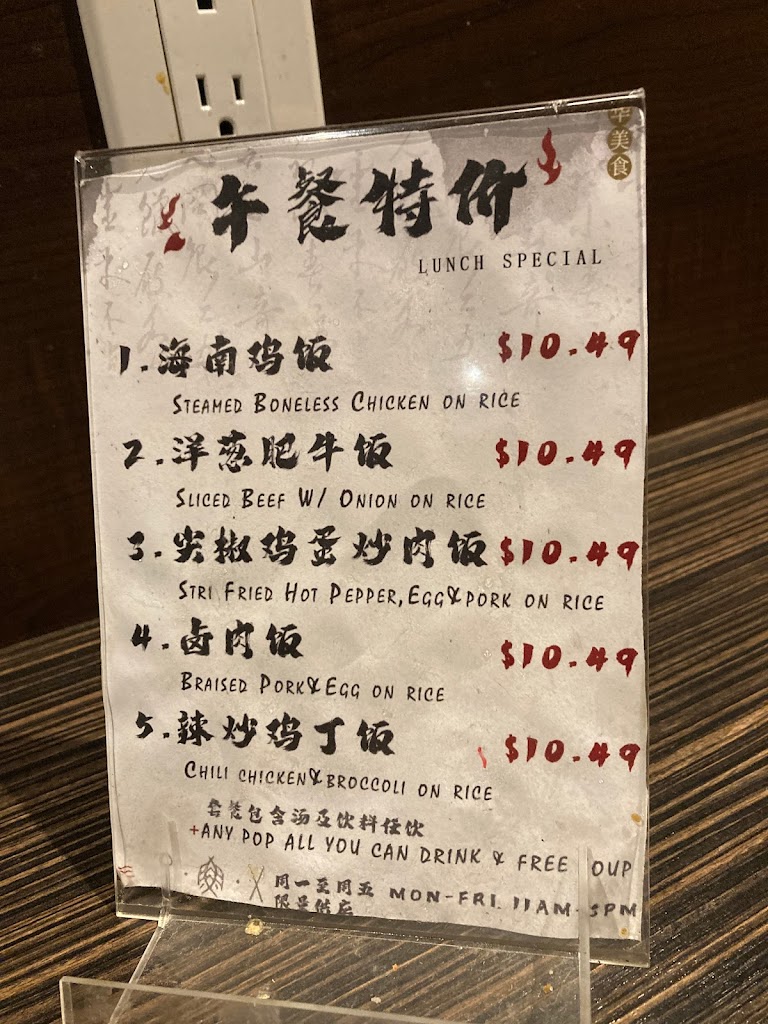 华美食
午餐特价
LUNCH SPECIAL
1.海南鸡饭 $10.49
STEAMED BONELESS CHICKEN ON RICE
2.洋葱肥牛饭 $10.49
SLICED BEEF W/ ONION ON RICE
3.尖椒鸡蛋炒肉饭 $10.49
STRI FRIED HOT PEPPER,EGG&PORK ON RICE
4.卤肉饭 $10.49
BRAISED PORK&EGG ON RICE
5.辣炒鸡丁饭 $10.49
CHILI CHICKEN&BROCCOLI ON RICE
套餐包含汤及饮料任饮
+ANY POP ALL YOU CAN DRINK & FREE OUP
周一至周五 MON-FRI. 11AM-3PM
限量供应